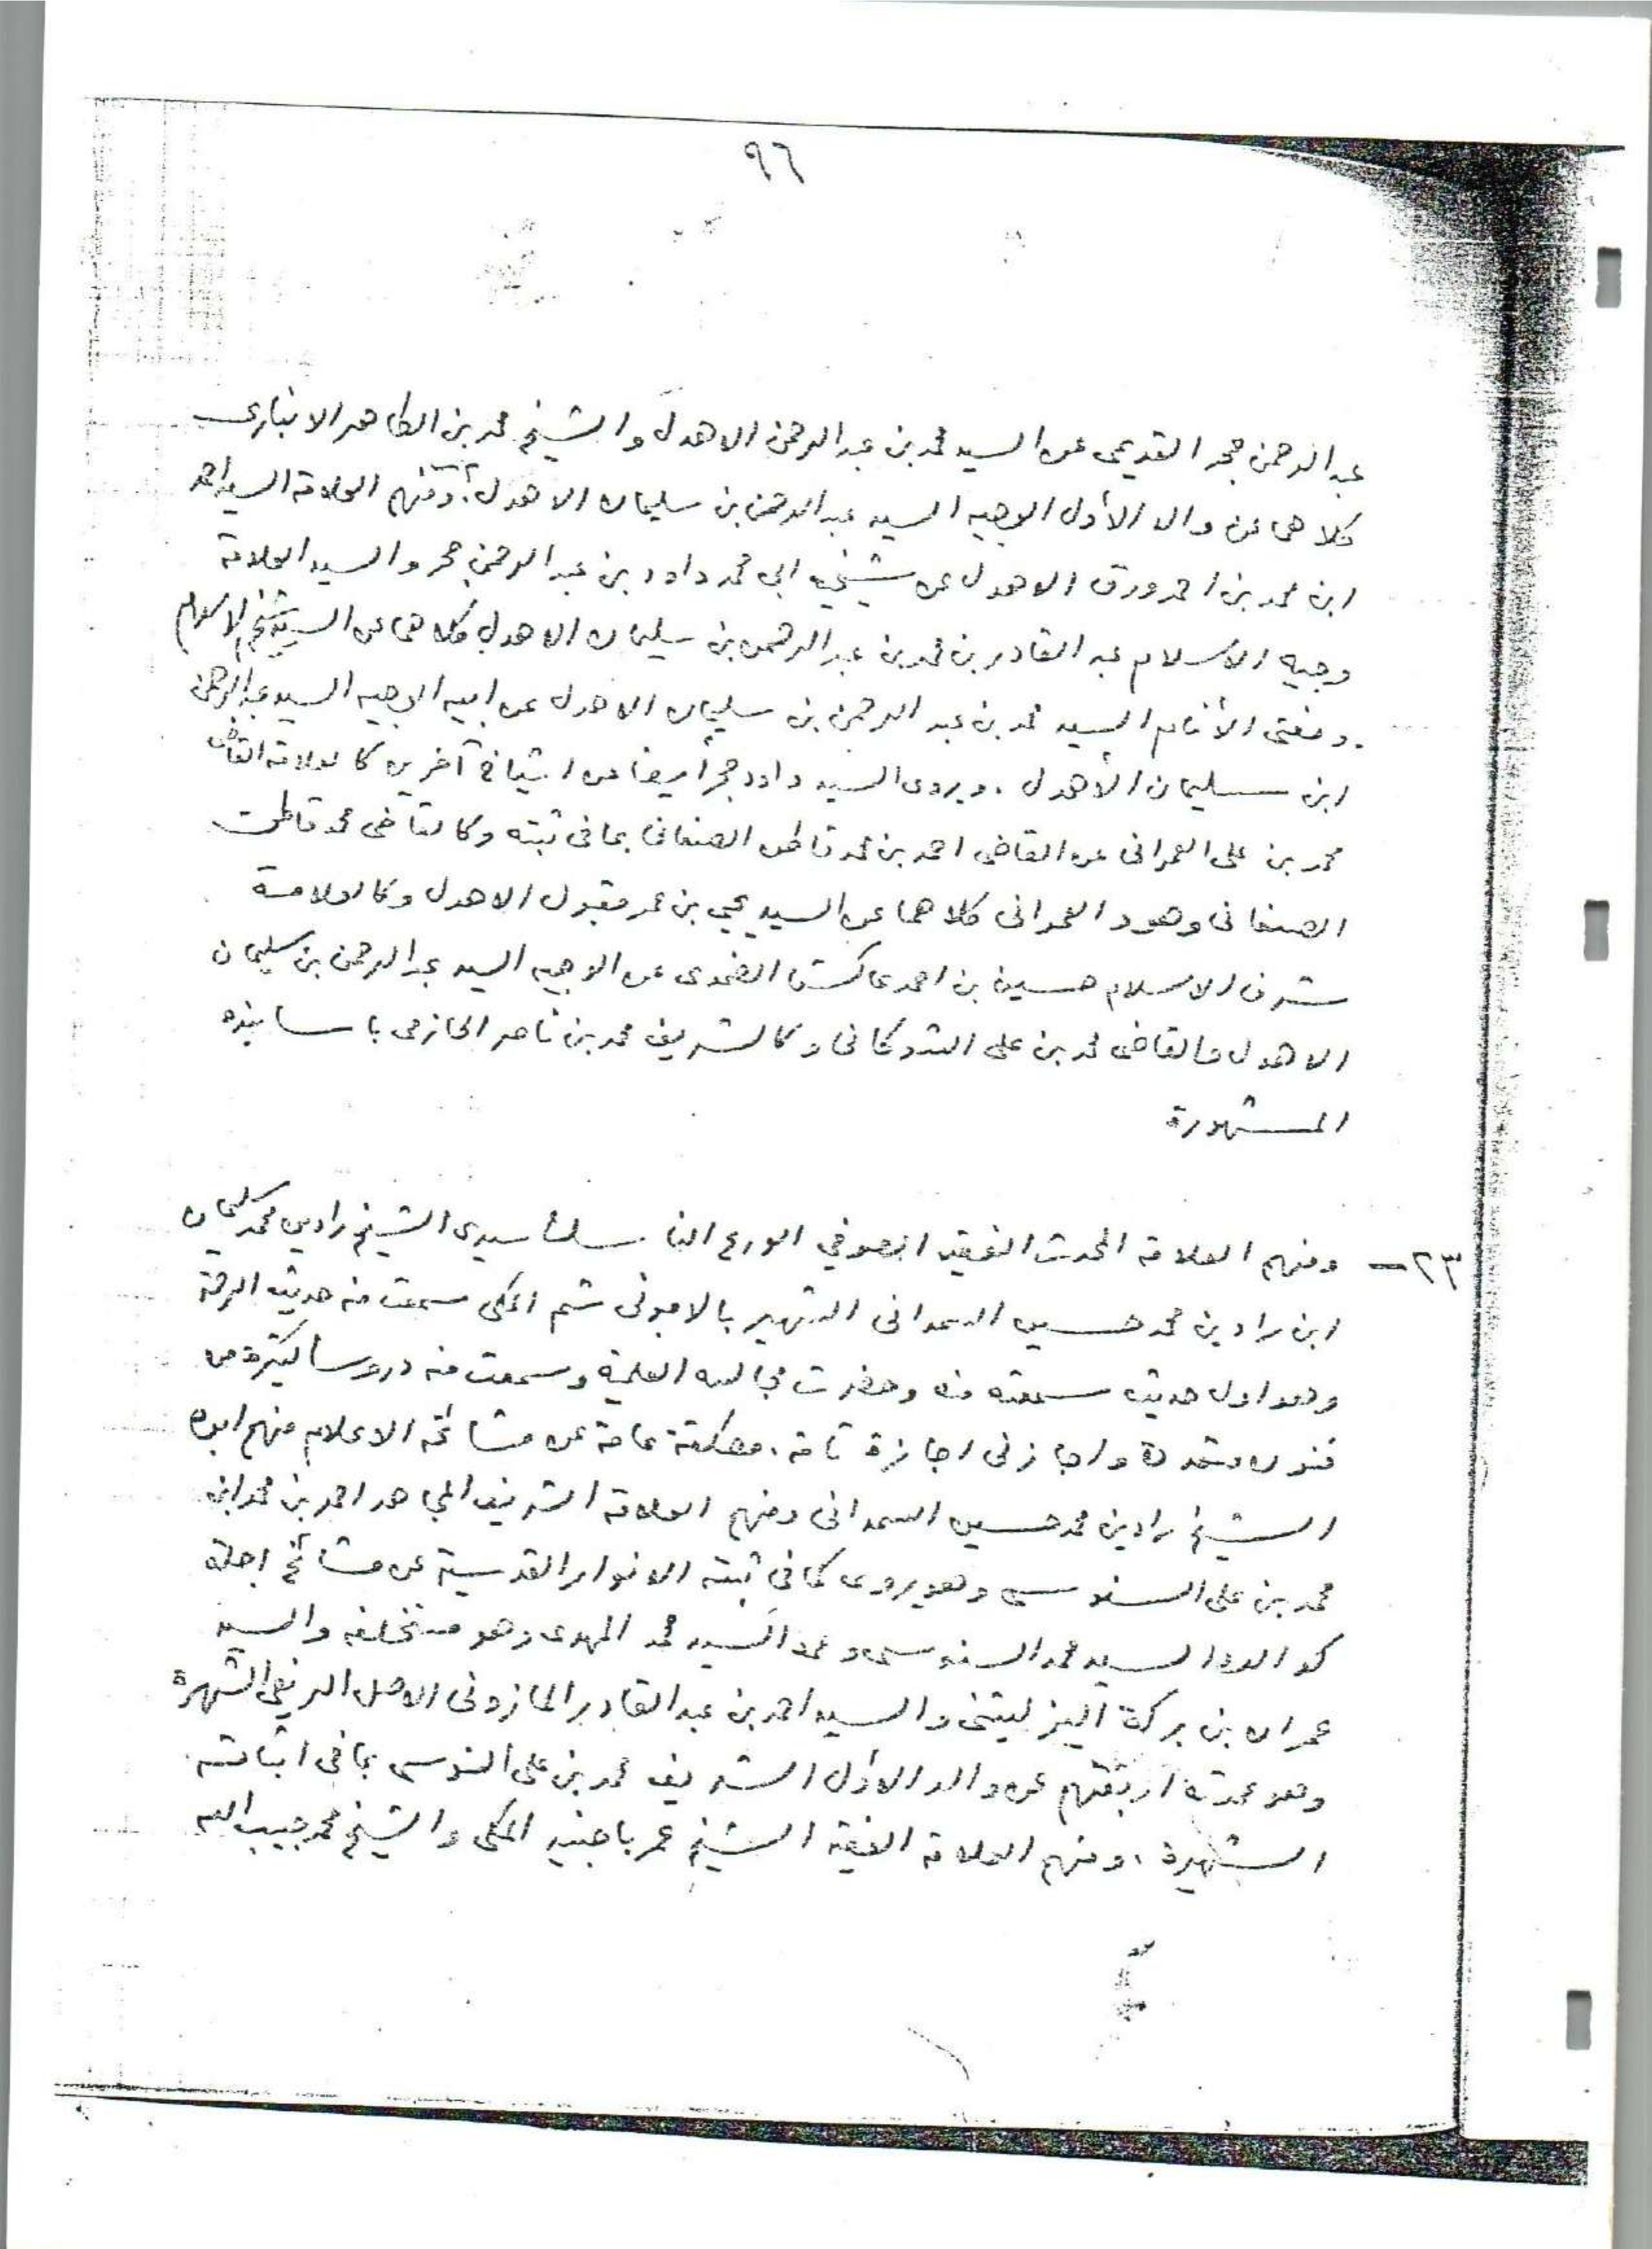 ٩٦
عبد الرحمن حجر القديمي عن السيد محمد بن عبد الرحمن الاهدل والشيخ محمد بن الطاهر الانباري
كلاهما عن والد الأول الوجيه السيد عبد الرحمن بن سليمان الاهدل، ومنهم العلامة السيد احمد
ابن محمد بن احمد ورق الاهدل عن شيخيه ابي محمد داود بن عبد الرحمن حجر والسيد العلامة
وجيه الاسلام عبد القادر بن محمد بن عبد الرحمن بن سليمان الاهدل كلاهما عن السيد شيخ الاسلام
ومفتى الأنام السيد محمد بن عبد الرحمن بن سليمان الاهدل عن ابيه الوجيه السيد عبد الرحمن
ابن سليمان الأهدل . ويروى السيد داود حجر أيضا عن اشياخ آخرين كالعلامة القاضى
محمد بن على العمرانى عن القاضى احمد بن محمد قاطن الصنعانى بما فى ثبته وكالقاضى محمد قاطن
الصنعانى وهو والعمرانى كلاهما عن السيد يحيى بن عمر مقبول الاهدل وكالعلامة
شرف الاسلام حسين بن احمد عاكش الضمدى عن الوجيه السيد عبد الرحمن بن سليمان
الاهدل والقاضى محمد بن على الشوكانى وكالشريف محمد بن ناصر الحازمى باسانيده
المشهورة
٢٣ - ومنهم العلامة المحدث الفقيه الصوفي الورع الناسك سيدى الشيخ رادين محمد سليمان
ابن رادين محمد حسين السمدانى الشهير بالامبونى ثم المكى سمعت منه حديث الرحمة
وهو اول حديث سمعته منه وحضرت مجالسه العلمية وسمعت منه دروسا كثيرة من
فنون متعددة واجازنى اجازة تامة مطلقة عامة عن مشائخه الاعلام منهم ابوه
الشيخ رادين محمد حسين السمدانى ومنهم العلامة الشريف المجاهد احمد بن محمد ابن
محمد بن على السنوسى وهو يروى كما فى ثبته الانوار القدسية عن مشائخ اجلة
كوالده السيد محمد السنوسى وعمه السيد محمد المهدى وهو مستخلفه والسيد
عمران بن بركة اليزليتنى والسيد احمد بن عبد القادر المازونى الاصل الريفى الشهرة
وهو عمدته اربعتهم عن والد الاول الشريف محمد بن على السنوسى بما فى اثباته
الشهيرة ، ومنهم العلامة الفقيه الشيخ عمر باجنيد المكى والشيخ محمد حبيب الله